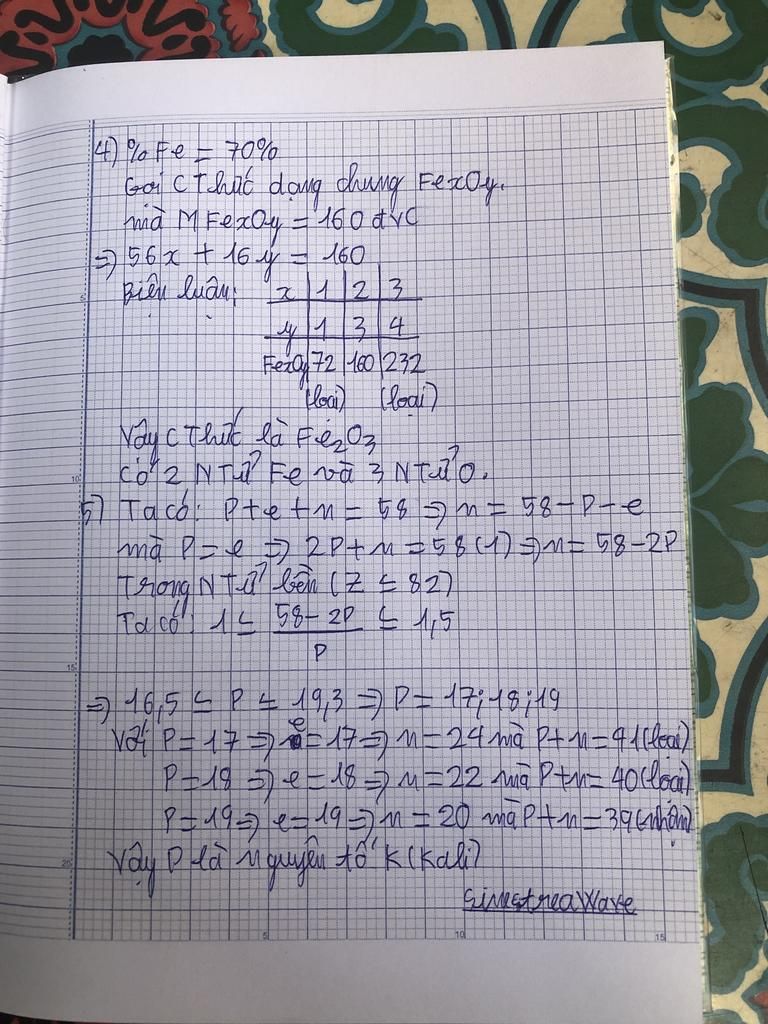 4) % Fe = 70%
Gọi CThức dạng chung FexOy.
mà M FexOy = 160 đvC
=> 56x + 16y = 160
Biện luận: x | 1 | 2 | 3
y | 1 | 3 | 4
FexOy 72 | 160 | 232
(loại) (loại)
Vậy CThức là Fe2O3
Có 2 NTử Fe và 3 NTử O.
5) Ta có: P+e+n = 58 => n = 58-P-e
mà P = e => 2P+n = 58 (1) => n = 58-2P
Trong NTử bền (Z ≤ 82)
Ta có: 1 ≤ 58-2P / P ≤ 1,5
=> 16,5 ≤ P ≤ 19,3 => P = 17; 18; 19
Với P = 17 => e = 17 => n = 24 mà P+n = 41 (loại)
P = 18 => e = 18 => n = 22 mà P+n = 40 (loại)
P = 19 => e = 19 => n = 20 mà P+n = 39 (nhận)
Vậy P là nguyên tố K (Kali)
SinestreaWave
5
10
15
20
5
10
15